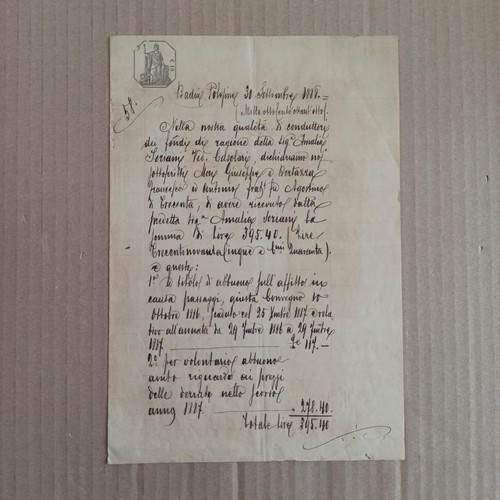 51.
Badia Polesine 30 Settembre 1888.=
(Mille ottocento ottant'otto).
Nella nostra qualità di conduttori
dei fondi di ragione della Sigª Amalia
Soriani Ved. Casolari, dichiariamo noi
sottoscritti Giuseppe e
Francesco ed Antonio fratelli fu Agostino
di Trecenta, di avere ricevuto dalla
predetta Sigª Amalia Soriani la
somma di Lire 395.40 (Lire
Trecentonovantacinque e Cmi Quaranta).
e queste:
1º A titolo di abbuono sull'affitto in
causa passaggi, giusta Convegno 10
ottobre 1886, scaduto col 25 1887 e rela
tivo all'annata da 29 1886 a 29
1887 £e 117.-
2º per volontario abbuono
avuto riguardo ai prezzi
delle derrate nello scorso
anno 1887 " 278.40.
Totale Lire 395.40